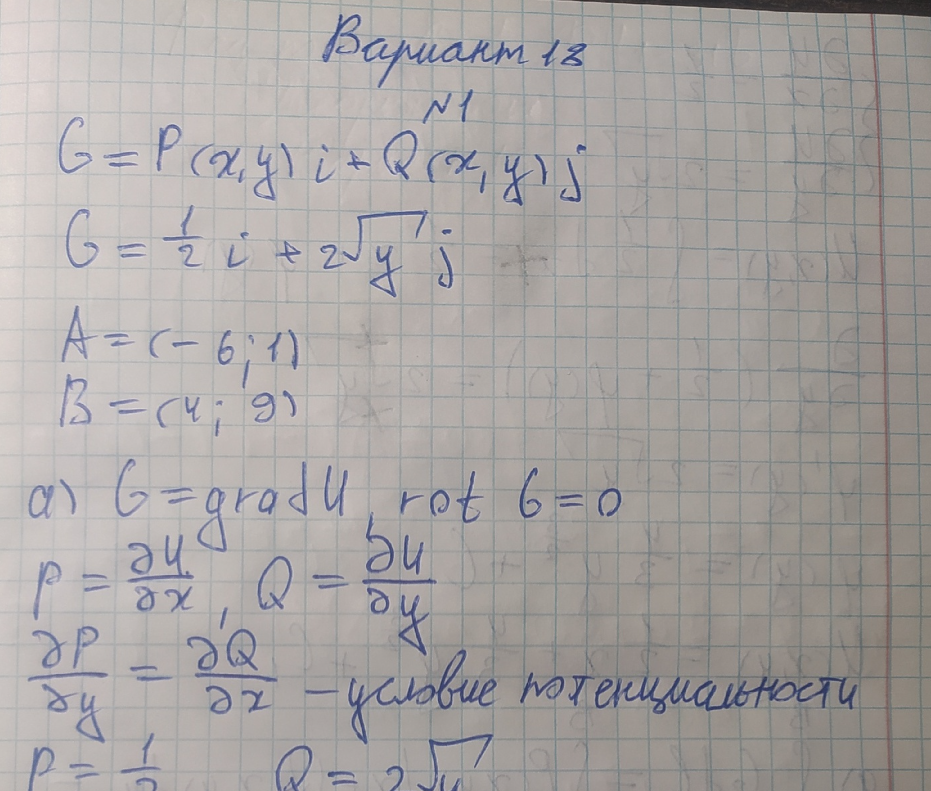 Вариант 18
№1
G = P(x,y) i + Q(x,y) j
G = 1/2 i + 2√y j
A = (-6; 1)
B = (4; 9)
a) G = grad U, rot G = 0
P = ∂U/∂x, Q = ∂U/∂y
∂P/∂y = ∂Q/∂x – условие потенциальности
P = 1/2 Q = 2√y